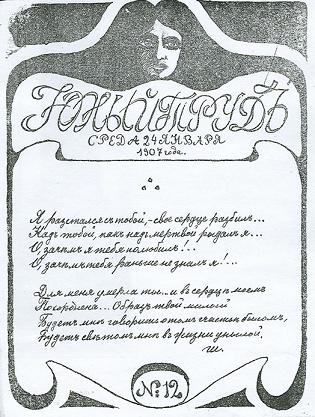 Юный Трудъ
СРЕДА 24 ЯНВАРЯ
1907 года.
Я разстался съ тобой, - свое сердце разбилъ...
Надъ тобой, какъ надъ мертвой рыдалъ я...
О, зачѣмъ я тебя полюбилъ!..
О, зачѣмъ тебя раньше не зналъ я!...
Для меня умерла ты... и въ сердцѣ моемъ
Погребена... Образъ твой милый
Будетъ мнѣ говорить о томъ счастьи быломъ,
Будетъ свѣтомъ мнѣ въ жизни унылой.
Ш.
№ 12